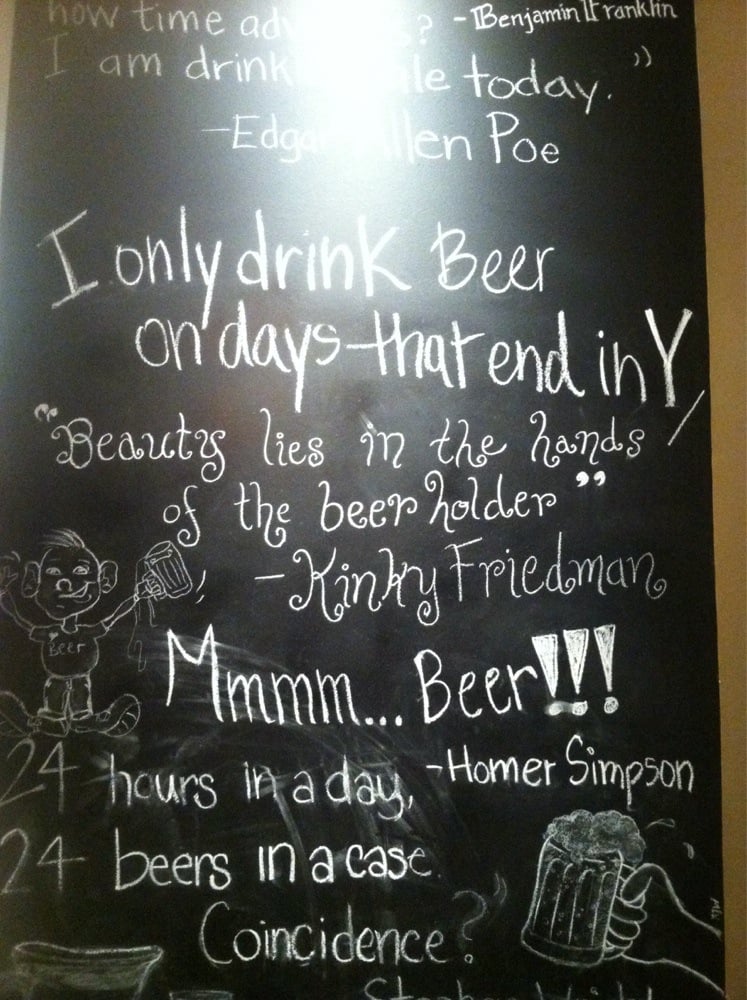 how time ? -Benjamin Franklin
I am drink ale today. "
-Edgar Allen Poe
I only drink Beer
on days that end in Y
"Beauty lies in the hands
of the beer holder"
-Kinky Friedman
Beer
Mmmm... Beer!!!
-Homer Simpson
24 hours in a day,
24 beers in a case.
Coincidence?